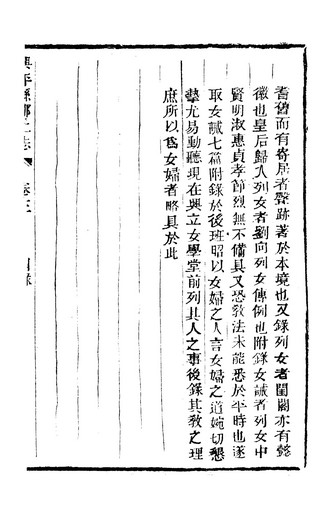 耆舊而有寄居者聲跡著於本境也又錄列女者閨閫亦有懿
徽也皇后歸入列女者劉向列女傳例也附錄女誡者列女中
賢明淑惠貞孝節烈無不備具又恐敎法未能悉於平時也遂
取女誡七篇附錄於後班昭以女婦之人言女婦之道婉切懇
摯尤易動聽現在興立女學堂前列其人之事後錄其敎之理
庶所以爲女婦者略具於此
興平縣鄉土志
卷三
目錄